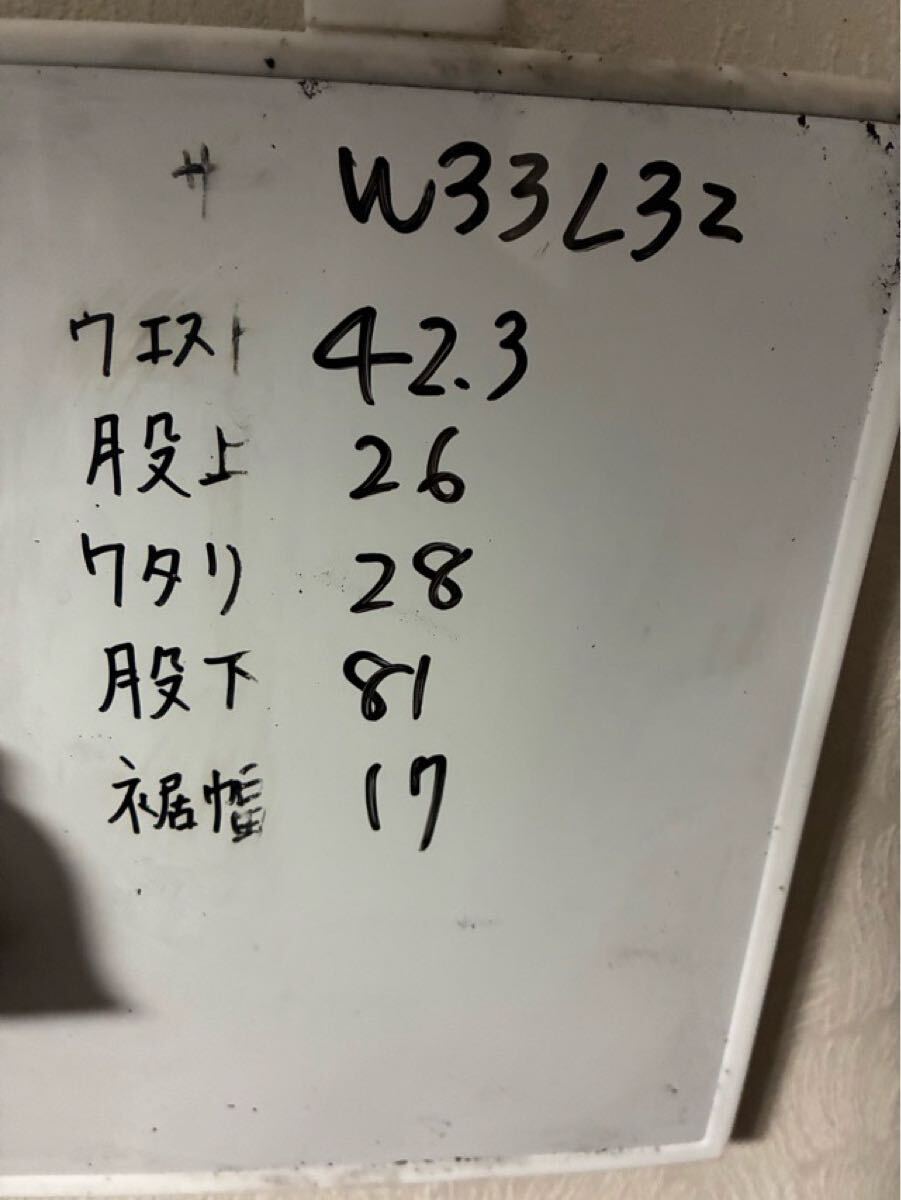 サ W33L32
ウエスト 42.3
股上 26
ワタリ 28
股下 81
裾幅 17